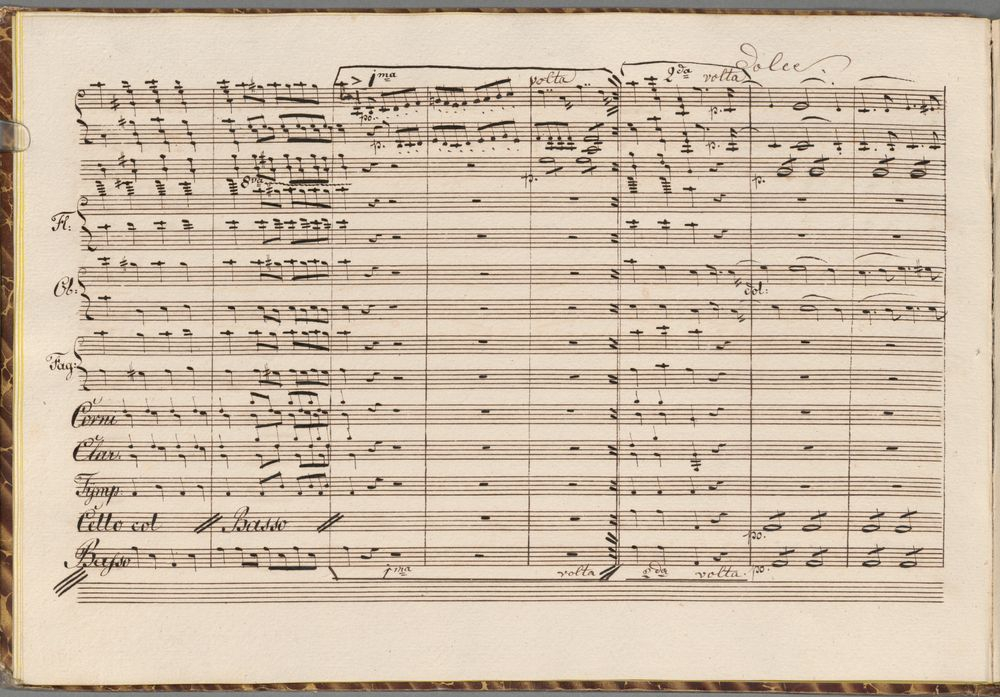 dolce.
1ma volta 2da volta
po.
p. p.
p.
p. p.
8va
Fl:
Ob: dol:
Fag:
Corni
Clar.
Tymp:
Cello col Basso
po.
Basso
1ma volta 2da volta. po.